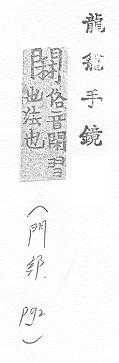 龍龕手鏡
俗音閑習
也法也
(門部. p92)